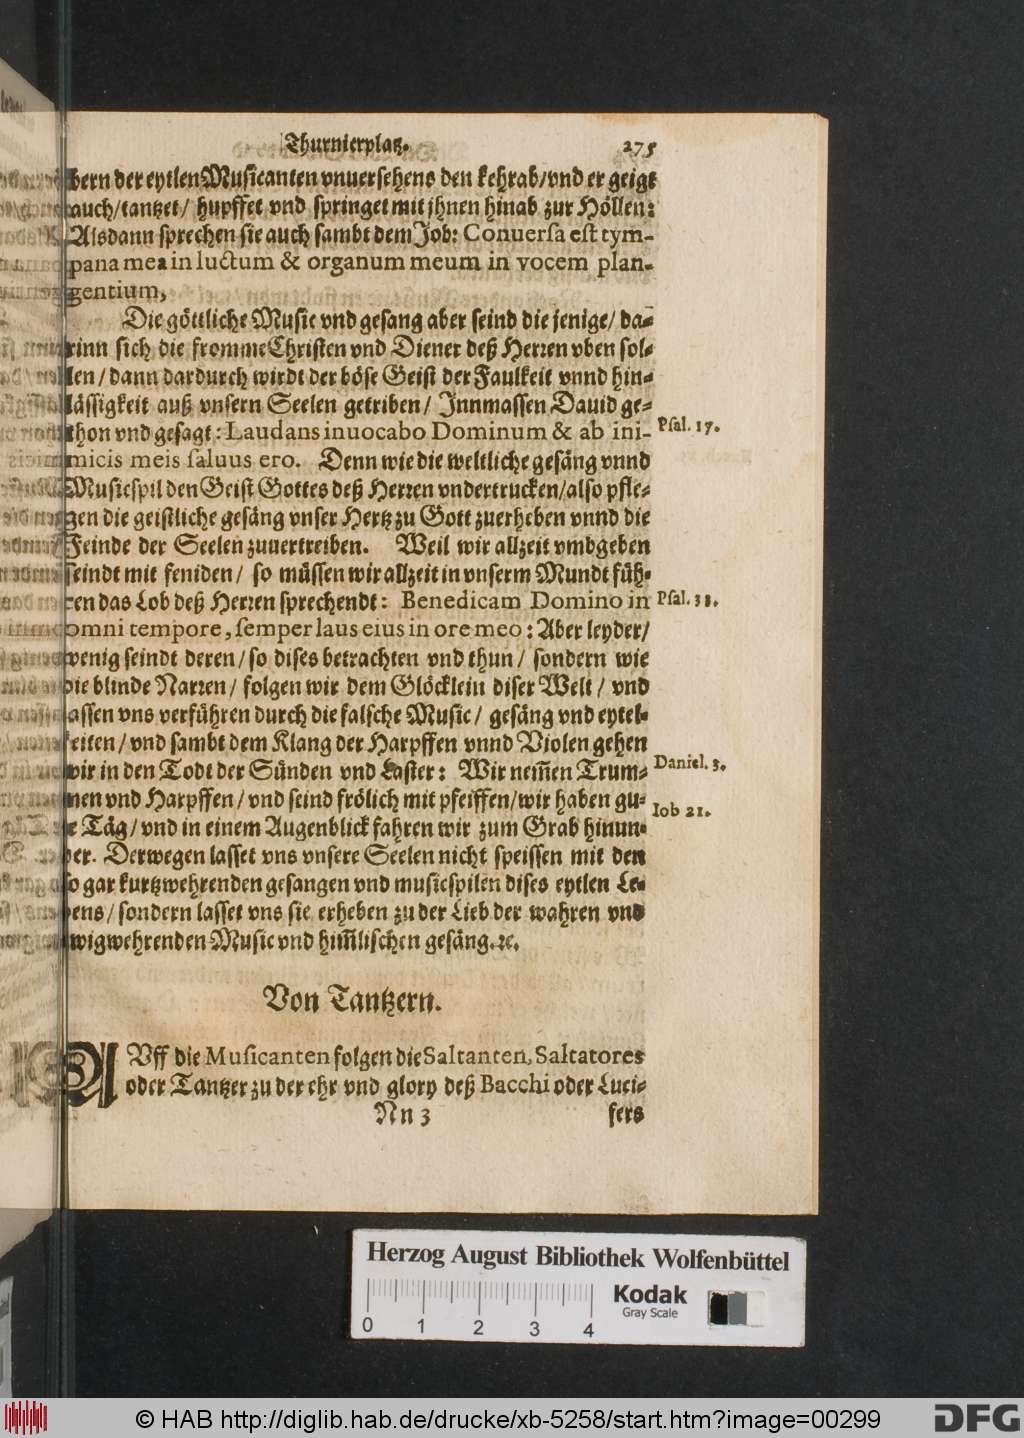 Thurnierplatz. 275
bern der eytlen Musicanten vnuersehens den kehrab/vnd er geigt
auch/tantzet/ hupffet vnd springet mit jhnen hinab zur Höllen:
Alsdann sprechen sie auch sambt dem Job: Conuersa est tym-
pana mea in luctum & organum meum in vocem plan-
gentium,
Die göttliche Music vnd gesang aber seind die jenige/ da-
rinn sich die fromme Christen vnd Diener deß Herren vben sol-
len/dann dardurch wirdt der böse Geist der Faulkeit vnnd hin-
lässigkeit auß vnsern Seelen getriben/ Innmassen Dauid ge-
thon vnd gesagt: Laudans inuocabo Dominum & ab ini- Psal. 17.
micis meis saluus ero. Denn wie die weltliche gesäng vnnd
Musicspil den Geist Gottes deß Herren vndertrucken/also pfle-
gen die geistliche gesäng vnser Hertz zu Gott zuerheben vnnd die
Feinde der Seelen zuuertreiben. Weil wir allzeit vmbgeben
seindt mit feniden/ so müssen wir allzeit in vnserm Mundt füh-
ren das Lob deß Herren sprechendt: Benedicam Domino in Psal. 33.
omni tempore, semper laus eius in ore meo: Aber leyder/
wenig seindt deren/so dises betrachten vnd thun/ sondern wie
die blinde Narren/ folgen wir dem Glöcklein diser Welt/ vnd
assen vns verführen durch die falsche Music/ gesäng vnd eytel-
keiten/vnd sambt dem Klang der Harpffen vnnd Violen gehen
wir in den Todt der Sünden vnd Laster: Wir nem̃en Trum- Daniel. 3.
men vnd Harpffen/vnd seind frölich mit pfeiffen/wir haben gu- Iob 21.
e Täg/vnd in einem Augenblick fahren wir zum Grab hinun-
der. Derwegen lasset vns vnsere Seelen nicht speissen mit den
so gar kurtzwehrenden gesangen vnd musicspilen dises eytlen Le-
bens/sondern lasset vns sie erheben zu der Lieb der wahren vnd
wigwehrenden Music vnd him̃lischen gesäng.ꝛc.
Von Tantzern.
AUff die Musicanten folgen die Saltanten, Saltatores
oder Tantzer zu der ehr vnd glory deß Bacchi oder Luci-
Nn 3 fers
Herzog August Bibliothek Wolfenbüttel
Kodak
Gray Scale
0 1 2 3 4
© HAB http://diglib.hab.de/drucke/xb-5258/start.htm?image=00299
DFG